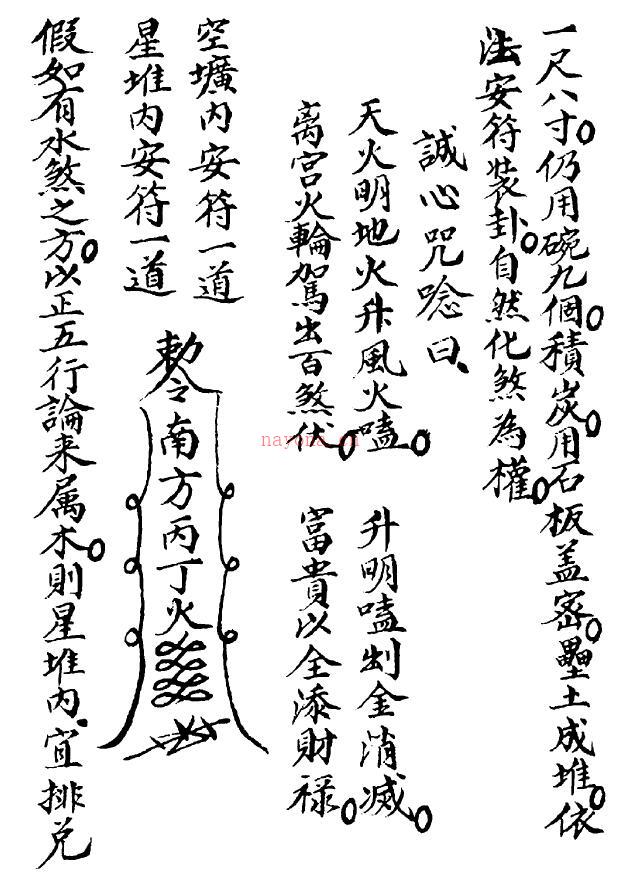 一尺八寸。仍用碗九個。積炭。用石板盖密。壘土成堆。依
法安符装卦。自然化煞為權。
誠心咒唸曰、
天火明地火升風火嗑。升明嗑出金消滅。
离宫火輪駕出百煞伏。富貴以全添財禄。
空壙内安符一道
星堆内安符一道
敕令南方丙丁火
假如有水煞之方。以正五行論来属木。則星堆内、宜排兑
nayona.cn